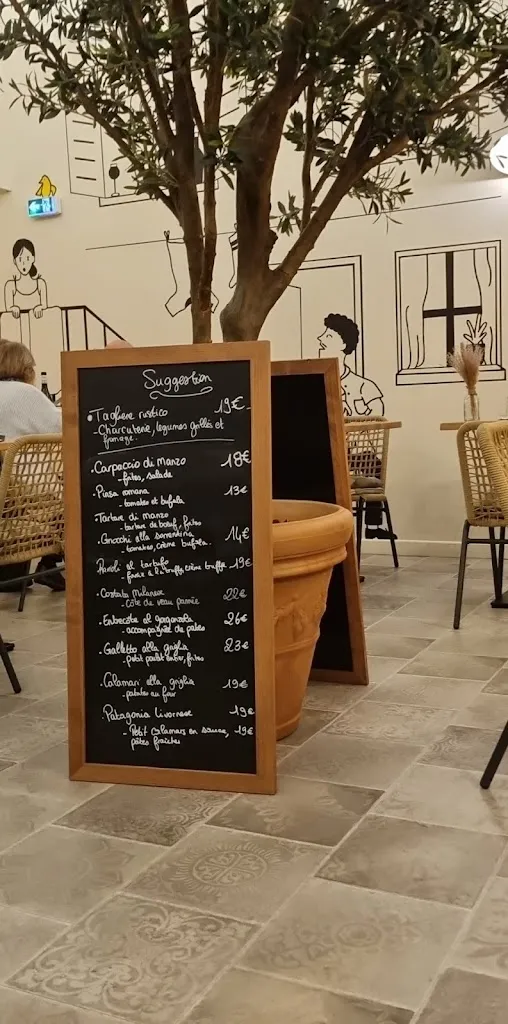 Suggestion
• Tagliere rustico 19€
- Charcuterie, légumes grillés et
fromage.
- Carpaccio di manzo 18€
- frites, salade
- Pinsa romana 13€
- tomates et bufala
- Tartare di manzo
- tartare de bœuf, frites
- Gnocchi alla sorrentina 14€
- tomates, crème bufala.
Ravioli al tartufo 19€
- farcie à la truffe, crème truffe
- Costata Milanese 22€
- Côte de veau panée
- Entrecote al gorgonzola 26€
- accompagnée de pates
- Galletto alla griglia 23€
- petit poulet entier, frites
- Calamari alla griglia 19€
- patates au four
Patagonia Livornese 19€
- Petit calamars en sauce, 19€
pâtes fraiches